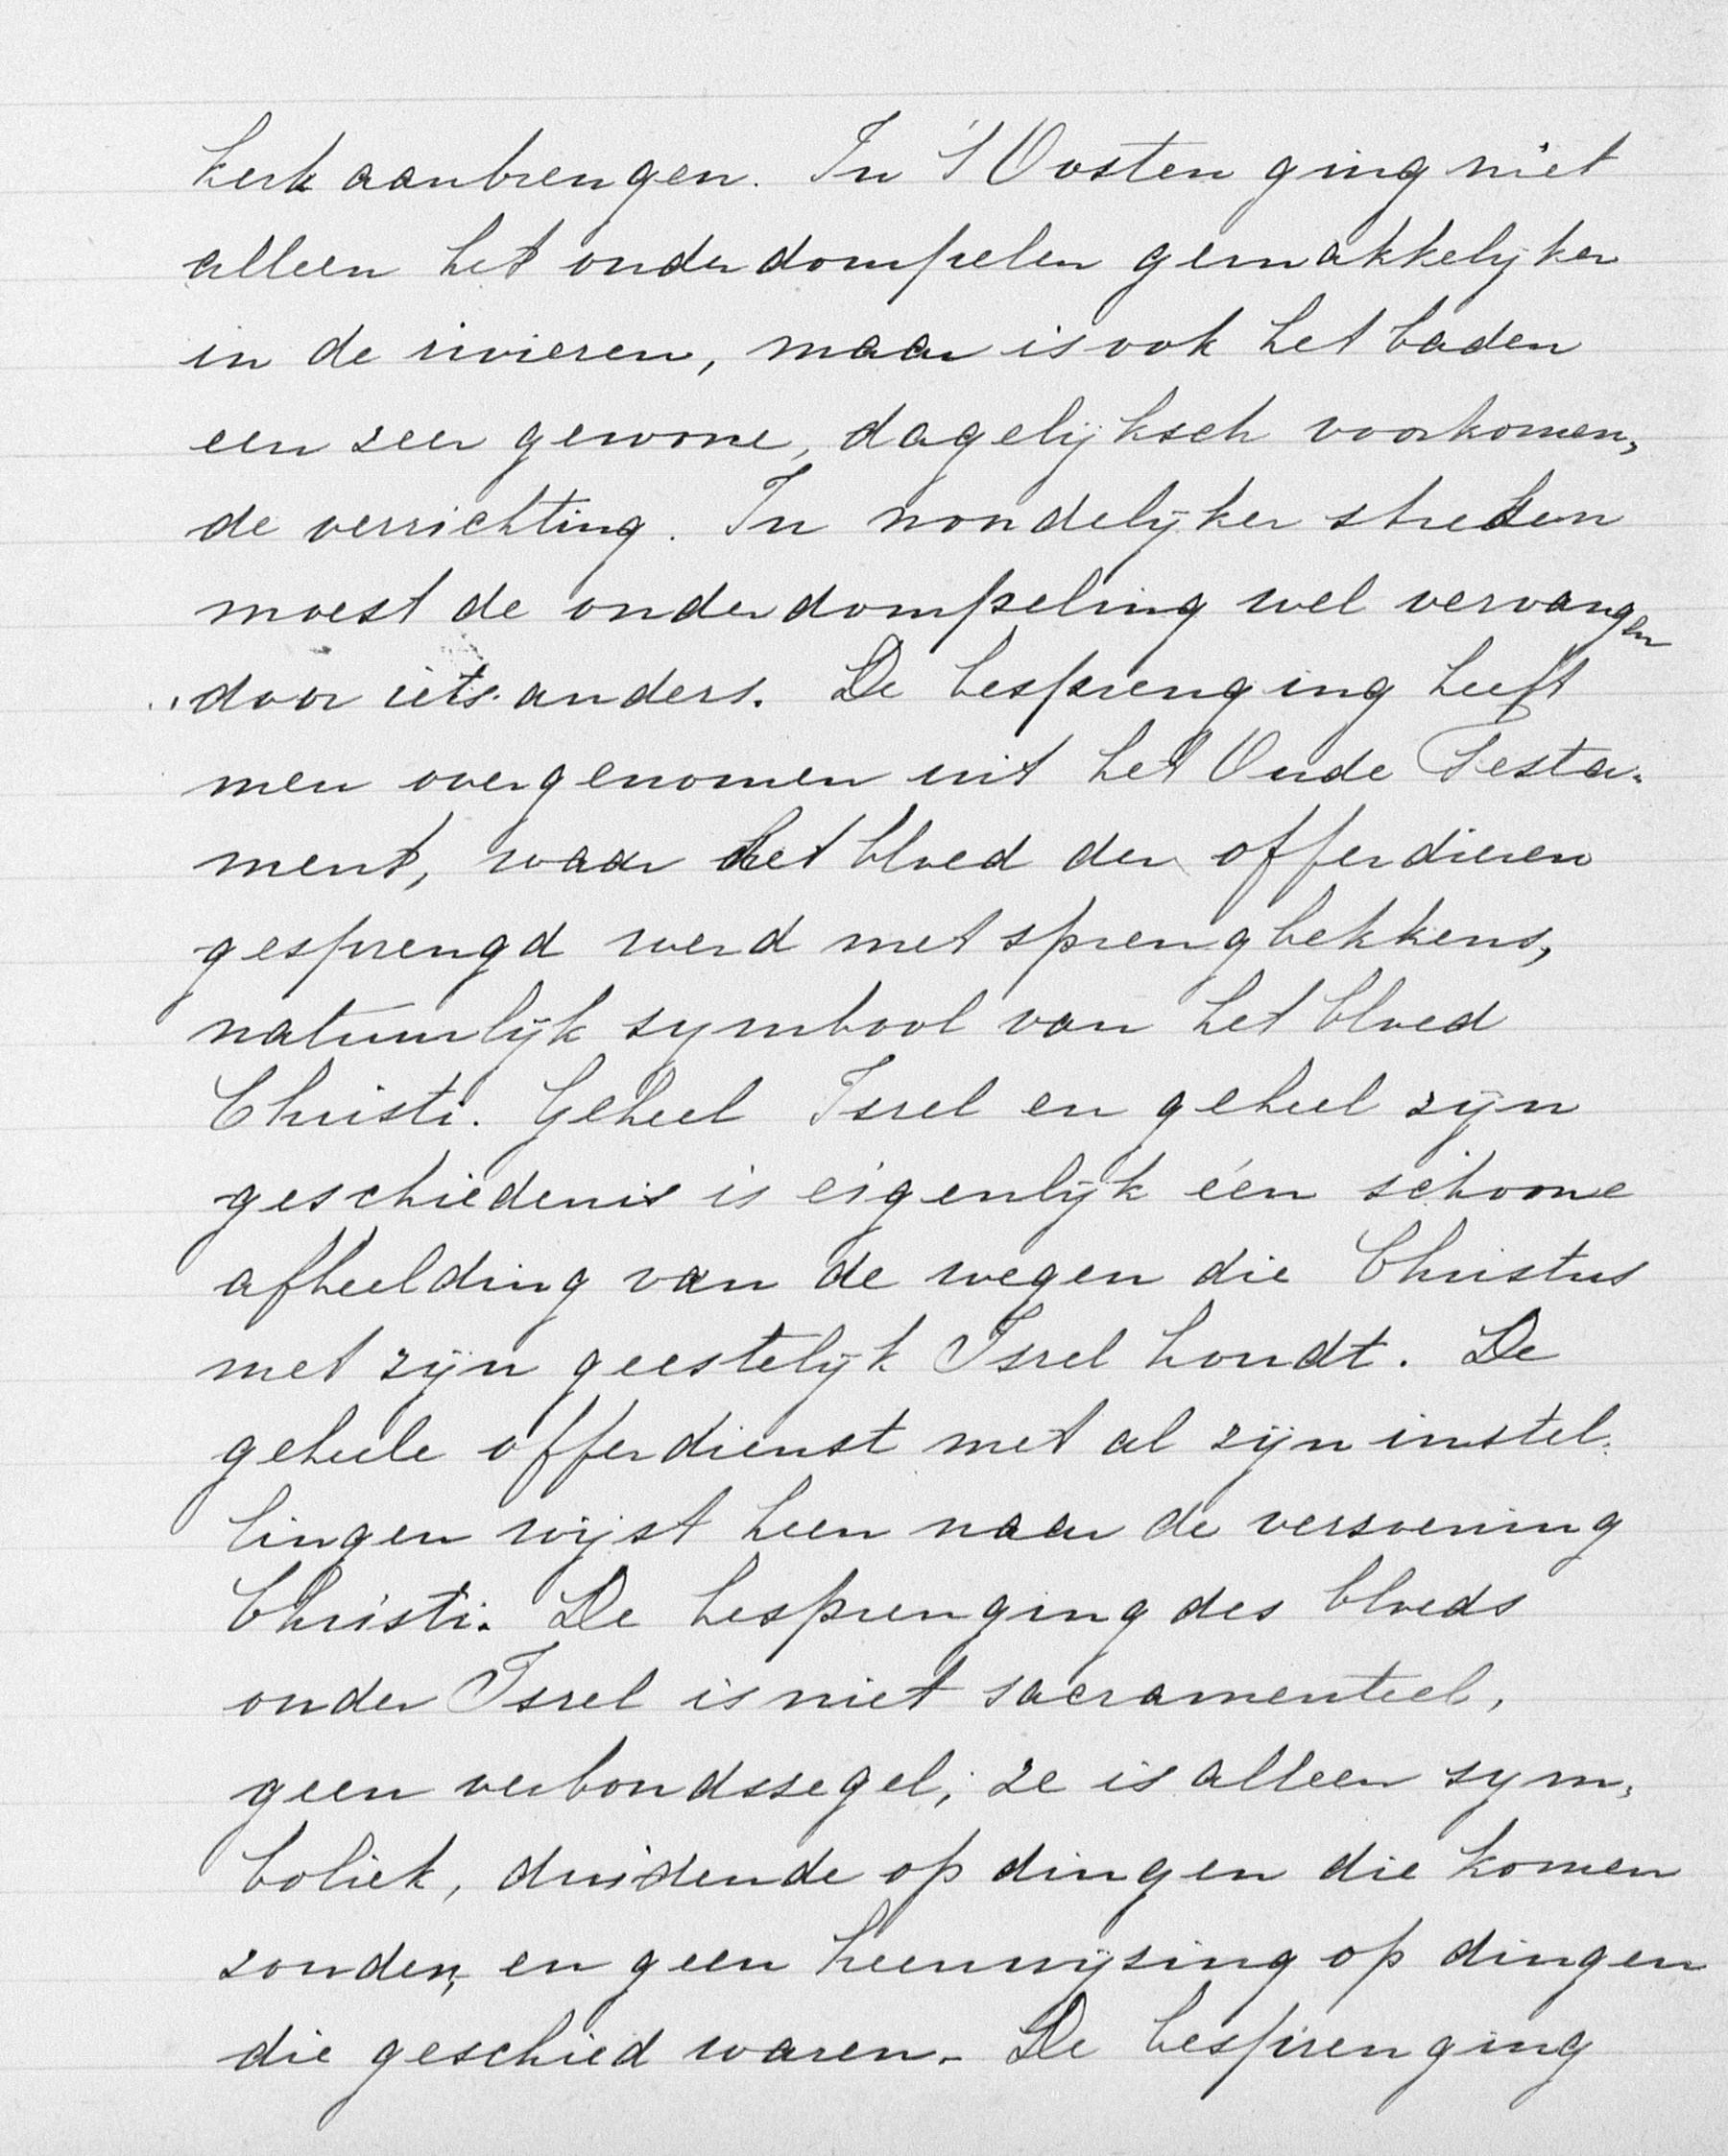 kerk aanbrengen. In 't Oosten ging niet
alleen het onderdompelen gemakkelijker
in de rivieren, maar is ook het baden
een zeer gewone, dagelijksch voorkomen,
de verrichting. In noordelijker streken
moest de onderdompeling wel vervangen
door iets anders. De besprenging heeft
men overgenomen uit het Oude Testa-
ment, waar het bloed der offerdieren
gesprengd werd met sprengbekkens,
natuurlijk symbool van het bloed
Christi. Geheel Isrel en geheel zijn
geschiedenis is eigenlijk één schoone
afbeelding van de wegen die Christus
met zijn geestelijk Isrel houdt. De
geheele offerdienst met al zijn instel-
lingen wijst heen naar de verzoening
Christi. De besprenging des bloeds
onder Isrel is niet sacramenteel,
geen verbondszegel; ze is alleen sym-
boliek, duidende op dingen die komen
zouden, en geen heenwijzing op dingen
die geschied waren. De besprenging